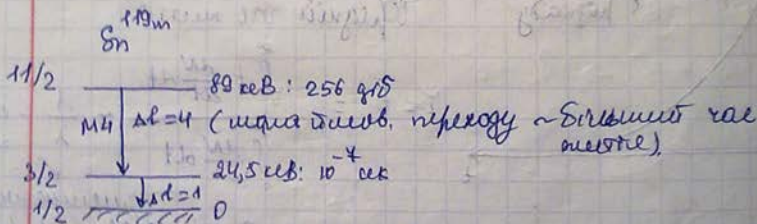 Sn¹¹⁹ᵐ
11/2 89 кеВ: 256 діб
M4 Δl=4 (мала ймов. переходу ~ більший час
життє).
3/2 24,5 кеВ: 10⁻⁷ сек
Δl=1
1/2 0